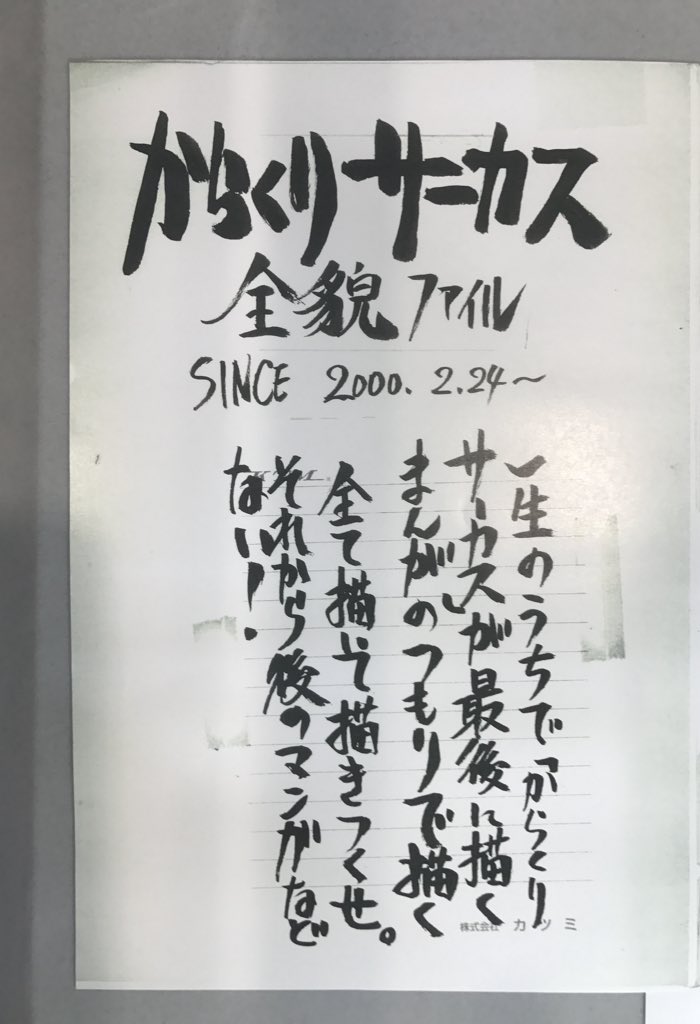 からくりサーカス
全貌ファイル
SINCE 2000. 2.24〜
一生のうちで「からくり
サーカス」が最後に描く
まんがのつもりで描く
全て描いて描きつくせ。
それから後のマンガなど
ない!.
株式会社 カツミ